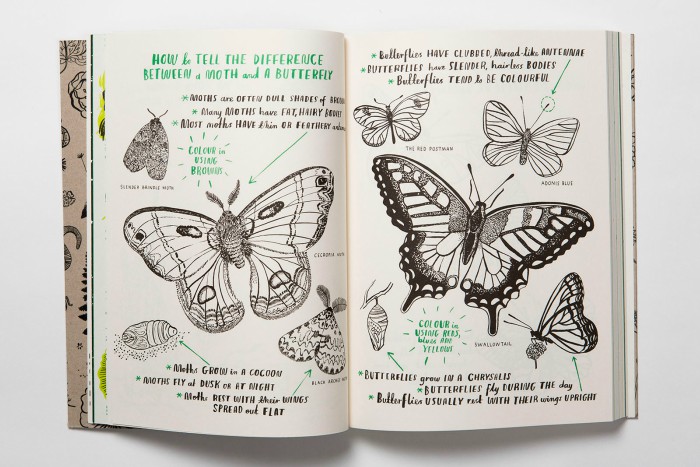 HOW to TELL THE DIFFERENCE
BETWEEN a MOTH and A BUTTERFLY
* MOTHS are OFTEN DULL SHADES of
* Many MOTHS have FAT, HAIRY
* MOST moths HAVE thin OR FEATHERY
SLENDER BRINDLE MOTH
COLOUR in
USING
BROWNS
CECROPIA
BLACK
* Moths GROW in a COCOON
* MOTHS FLY at DUSK OR AT NIGHT
* Moths REST WITH their WINGS
SPREAD out FLAT
* Butterflies HAVE CLUBBED, thread-like ANTENNAE
* BUTTERFLIES have SLENDER, hairless BODIES
* Butterflies TEND to BE COLOURFUL
THE RED POSTMAN
ADONIS BLUE
COLOUR in
USING REDS,
blues AND
YELLOWS
SWALLOWTAIL
* BUTTERFLIES grow IN A CHRYSALIS
* BUTTERFLIES fly DURING THE day
* Butterflies USUALLY rest WITH THEIR wings UPRIGHT